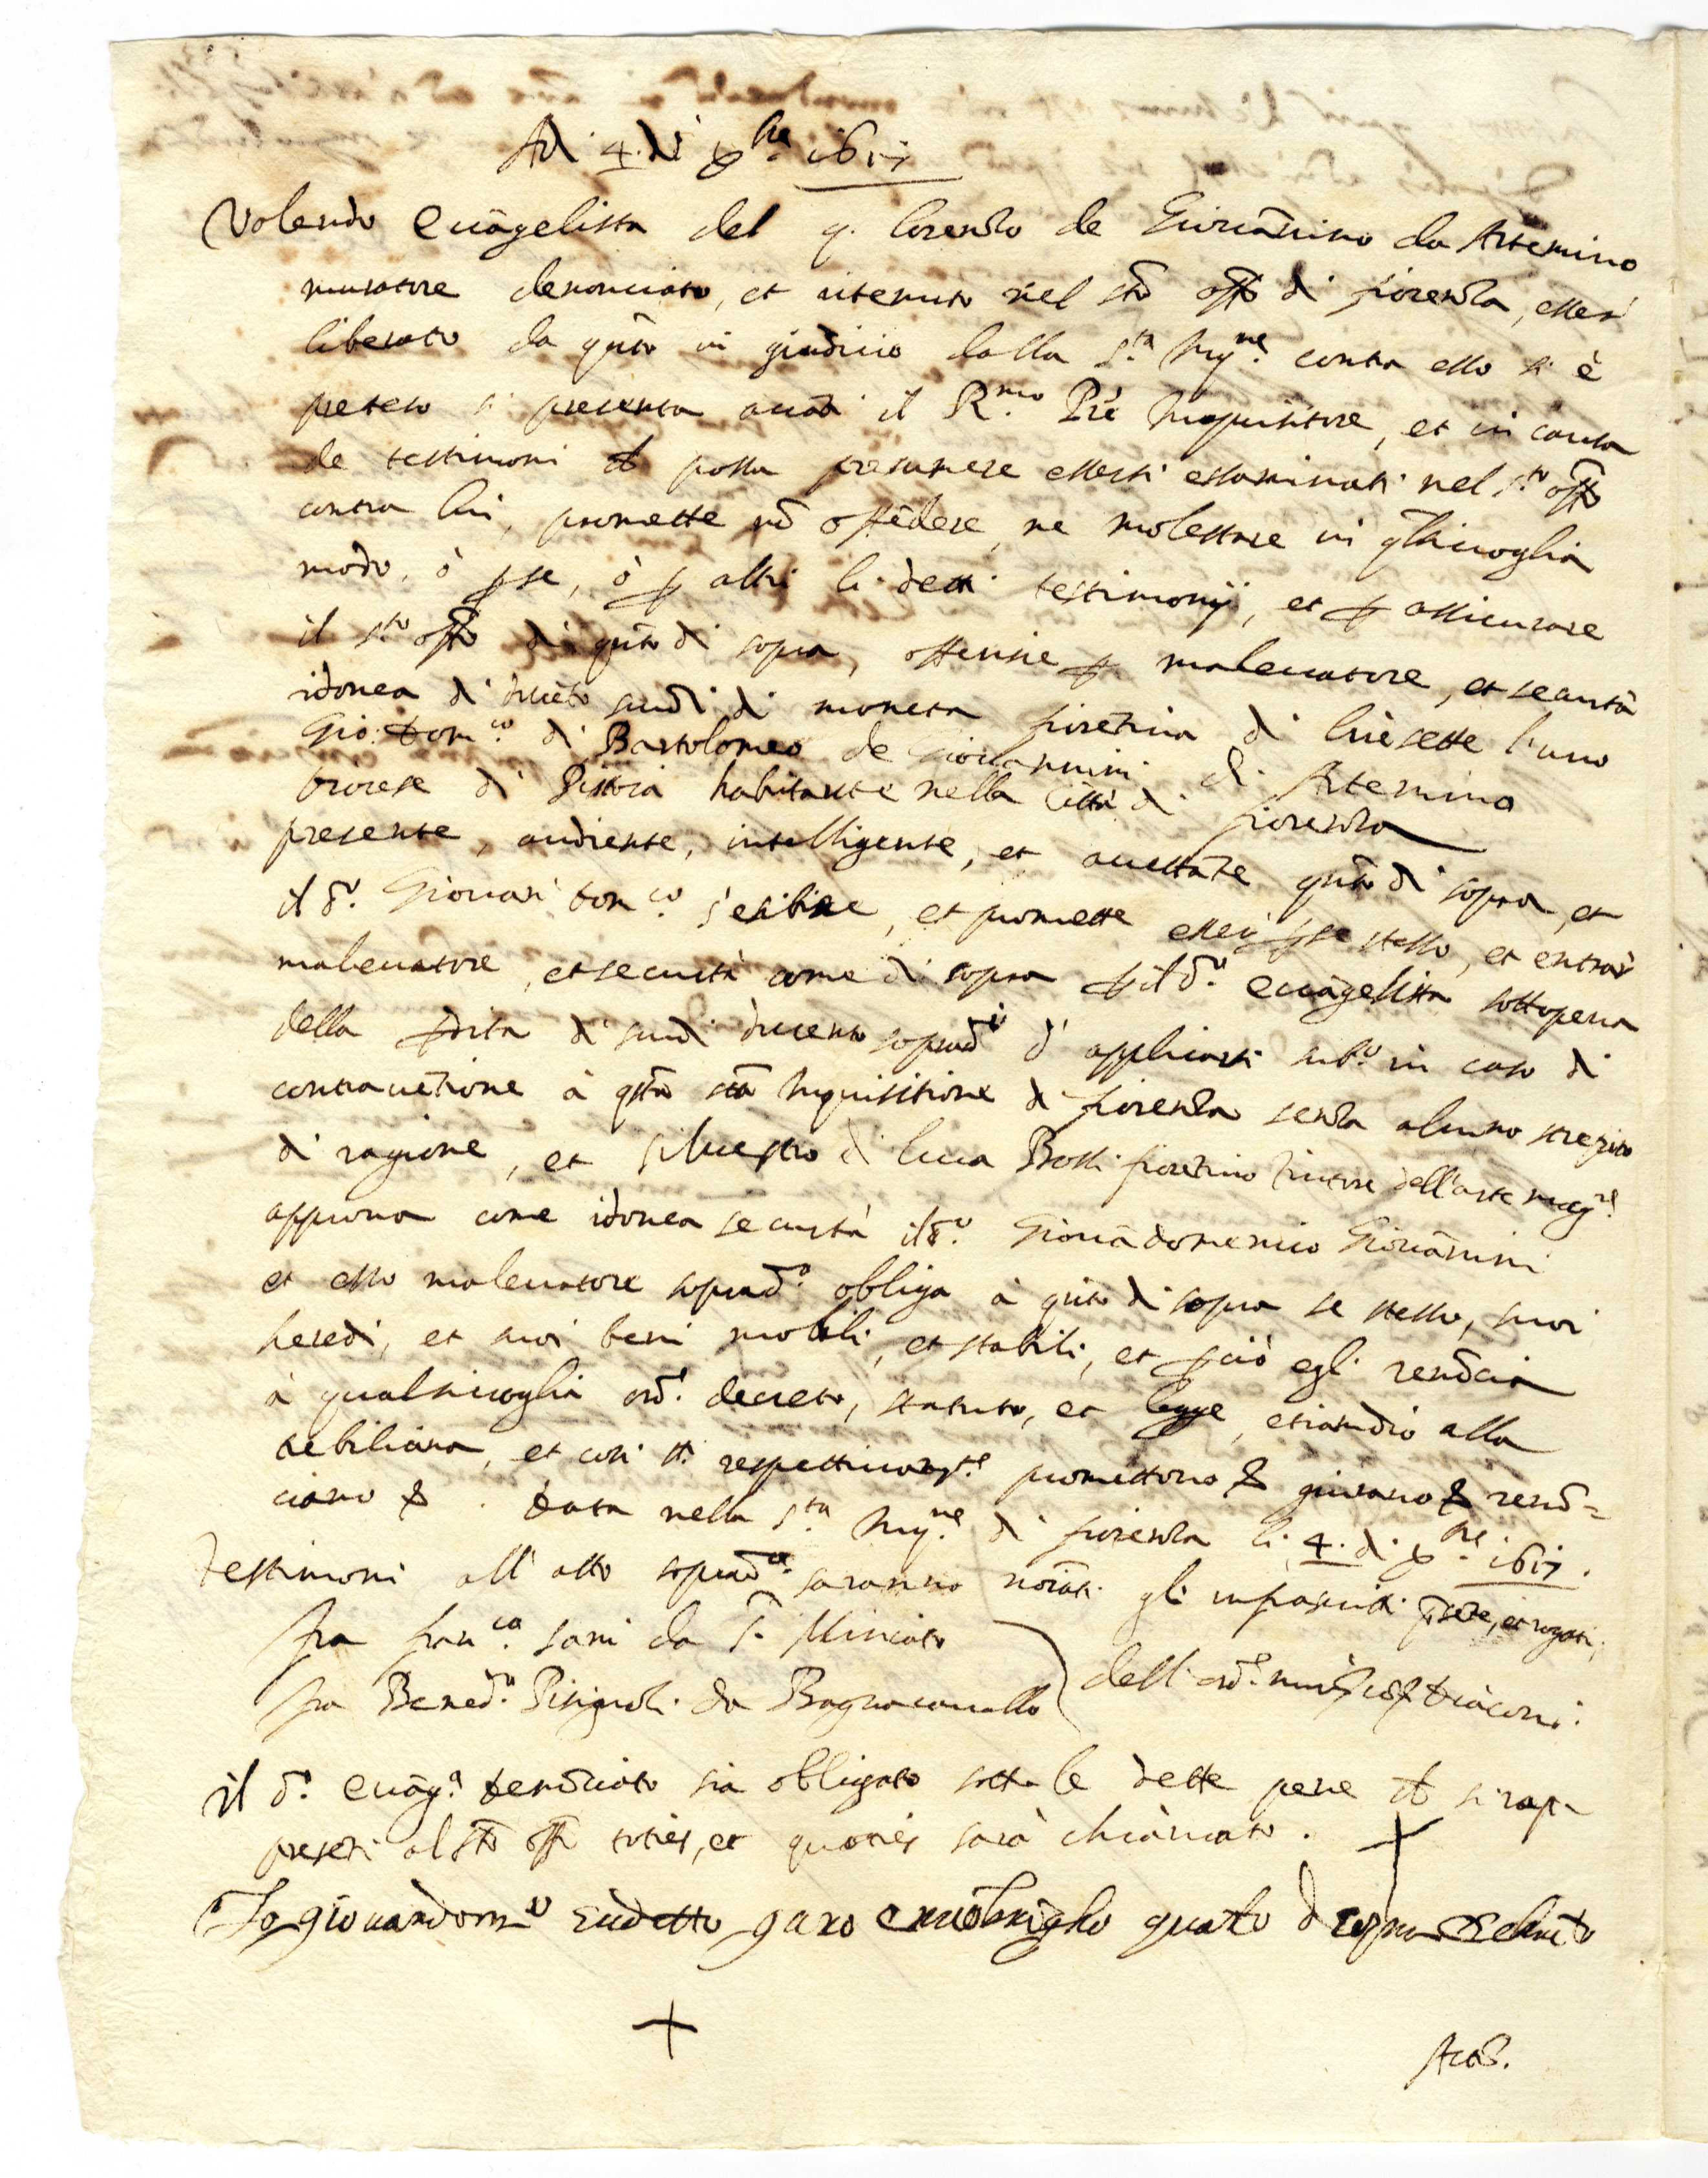 Adi 4. di Xbre 1617
Volendo Evāgelista del q. Lorenzo de Giovānino da Artemino
muratore denonciato, et ritenuto nel sto offo di fiorenza, esser
liberato da qnto in giudicio dalla S.ta Inq.ne contra esso si è
preteso si presenta avāti il R.mo Prē Inquisitore, et in causa
de testimoni ch possa presumere essersi essaminati nel s.to offo
contra lui, promette nō offēdere, ne molestare in qlsivoglia
modo, ò p se, ò p altri li detti testimonij, et p assicurare
il s.to offo di qnto di sopra, offerisce p malevatore, et securtà
idonea di ducēto scudi di moneta fiorētina di lire sette l'uno
Gio: Dom.co di Bartolomeo de Giovannini di Artemino
diocese di Pistoia habitante nella Città di fiorenza
presente, audiente, intelligente, et accettāte qnto di sopra, et
il d.o Giovan Dom.co s'esibisce, et promette esser p se stesso, et entrar
malevatore, et securtà come di sopra p il d.o Evāgelista sotto pena
della pdita di scudi ducento soprad.i d'applicarsi sub.o in caso di
contravētione à qsta sta Inquisitione di fiorenza senza alcuno strepito
di ragione, et Silvestro di Luca Bossi fiorētino tintore dell'arte mag.re
approva come idonea securtà il d.o Giovādomenico Giovānini
et esso malevatore soprad.o obliga à qnto di sopra se stesso, suoi
heredi, et suoi beni mobili, et stabili, et p ciò egli renōcia
à qualsivoglia ord.e decreto, statuto, et legge, etiandio alla
, et cosi tti respettivamte promettono & giurano & renō=
ciano &. Data nella S.ta Inq.ne di fiorenza li 4. di Xbre 1617.
Testimoni all'atto soprad.o saranno noīati gli infrascritti psēte, et rogati,
fra fran.co sani da S. Miniato
fra Bened.o da Bagnacavallo
dell'ord.e diaconi.
il d.o Evāg.a denōciato sia obligato sotto le dette pene ch si rap-
presēti al sto offo toties, et quoties sarà chiamato. +
Io giovandom.o sudetto et mi obrigho quāto di sopra
+
Acta.